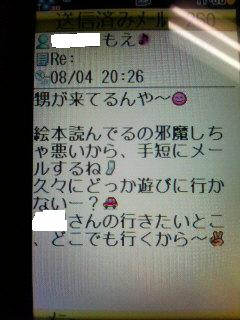 送信済みメール
もえ
Re:
08/04 20:26
甥が来てるんや〜
絵本読んでるの邪魔しち
ゃ悪いから、手短にメー
ルするね
久々にどっか遊びに行か
ないー？
さんの行きたいとこ
、どこでも行くから〜